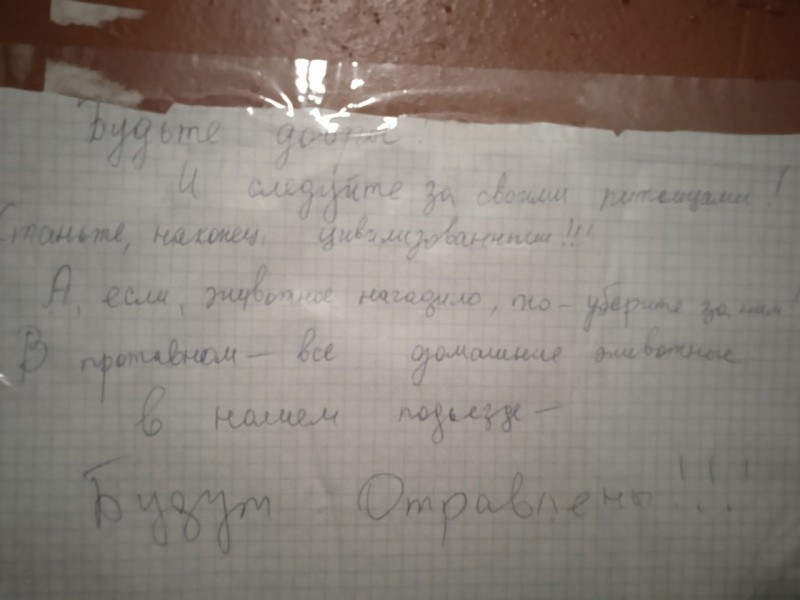 Будьте добры!
И следуйте за своими питомцами!
Станьте, наконец, цивилизованными!!!
А, если, животное нагадило, то - уберите за ним!
В противном - все домашние животные
в нашем подъезде -
Будут - Отравлены!!!